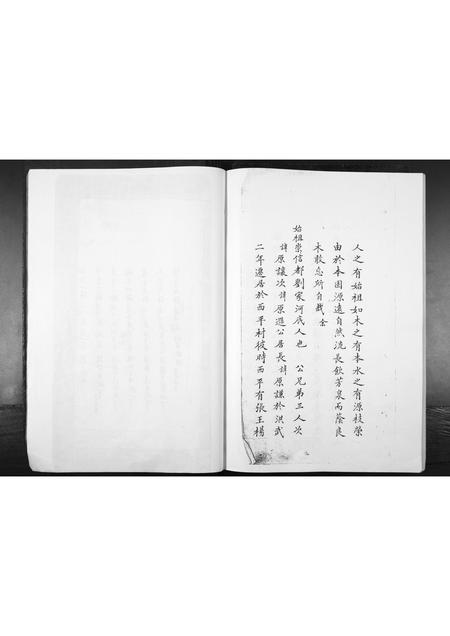 人之有始祖如木之有本水之有源枝榮
由於本固源遠自然流長飲芳泉而蔭良
木敢忘所自哉余
始祖崇信都劉家河底人也 公兄弟三人次
諱原讓次諱原遜公居長諱原謙於洪武
二年遷居於西平村彼時西平有張王楊